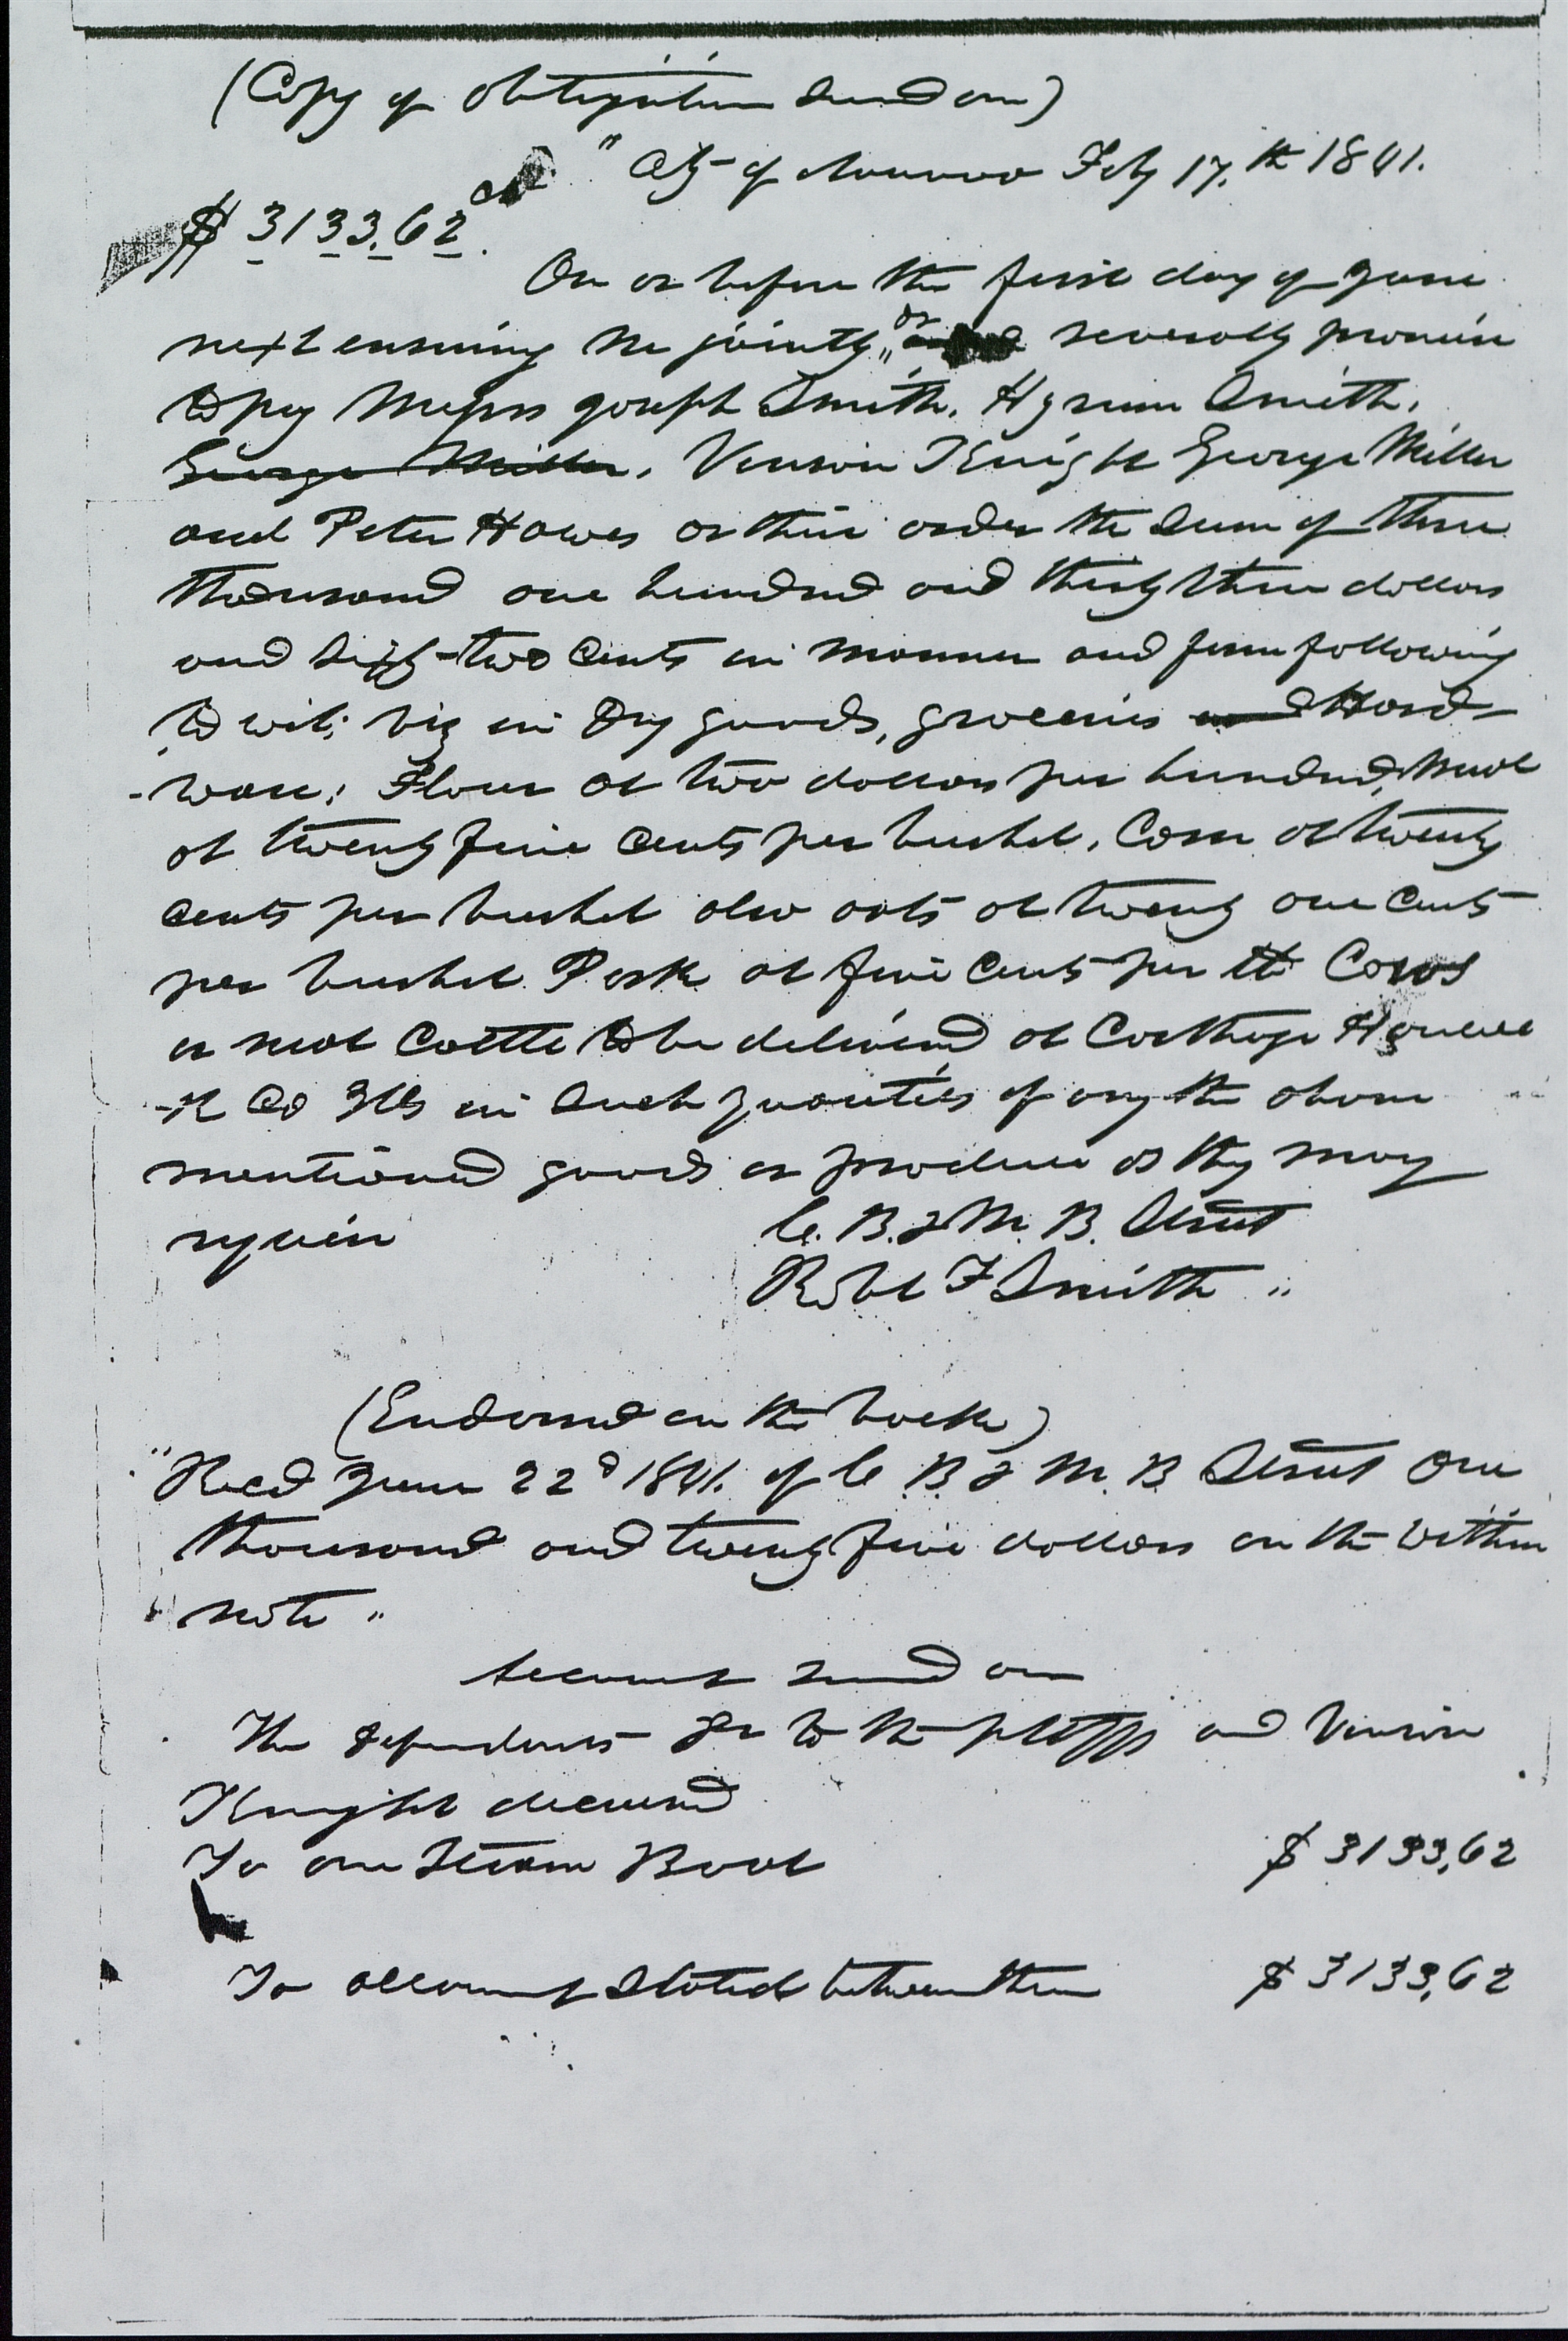 (Copy of obligation sued on)
" City of Nauvoo Feby 17.th 1841.
$ 3133.62 cts
On or before the first day of June
next ensuing we jointly, or severally promise
to pay Messrs Joseph Smith, Hyrum Smith,
George Miller, Vinson Knight George Miller
and Peter Hawes or their order the sum of three
thousand one hundred and thirty three dollars
and sixty-two cents in manner and form following
to wit; viz in Dry goods, groceries and Hard-
-ware; Flour at two dollars per hundred, Meal
at twenty five cents per bushel, Corn at twenty
cents per bushel also oats at twenty one cents
per bushel Pork at five cents per lb Cows
or neat Cattle to be delivered at Carthage Hancoc
-k Co Ills in such quantities of any the above
mentioned goods or produce as they may
require
C. B. & M. B. Street
Robt F Smith "
(Endorsed on the back)
"Recd June 22d 1841. of C B & M. B Street One
thousand and twenty five dollars on the within
note "
Account sued on
The defendants Dr to the pltffs and Vinson
Knight deceased
To one Steam Boat $ 3133,62
To account stated between them $ 3133,62